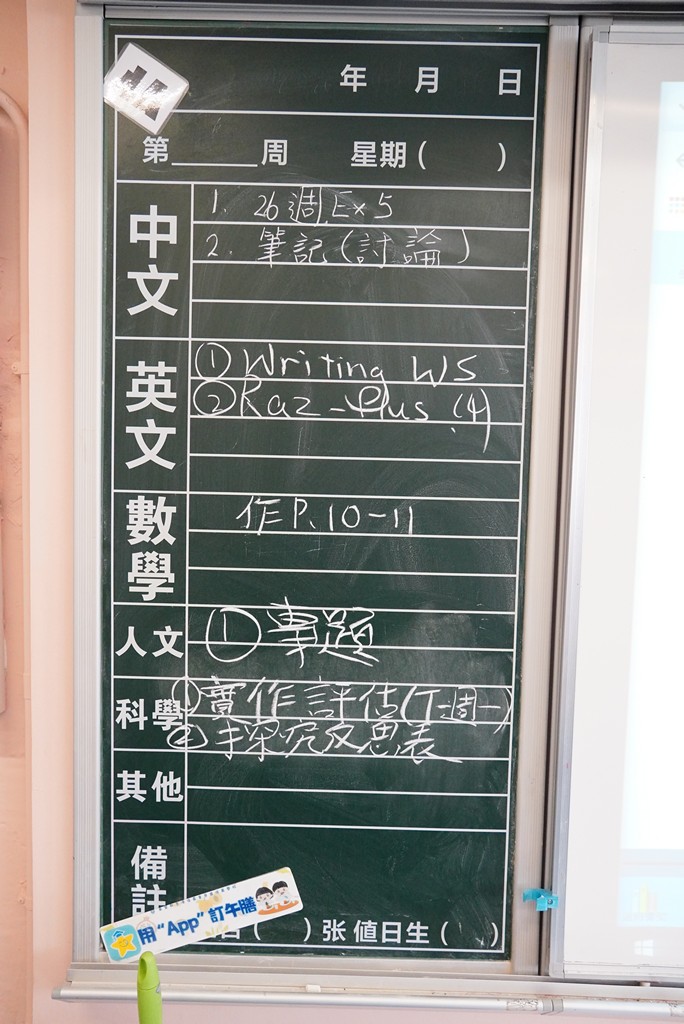 年 月 日
第 周 星期( )
中文
1. 26週 Ex 5
2. 筆記(討論)
英文
① Writing WS
② Raz-Plus (4)
數學
作P.10-11
人文
① 專題
科學
① 實作評估(下週一)
② 探究反思表
其他
備註
用“App”訂午膳
( )张 值日生( )